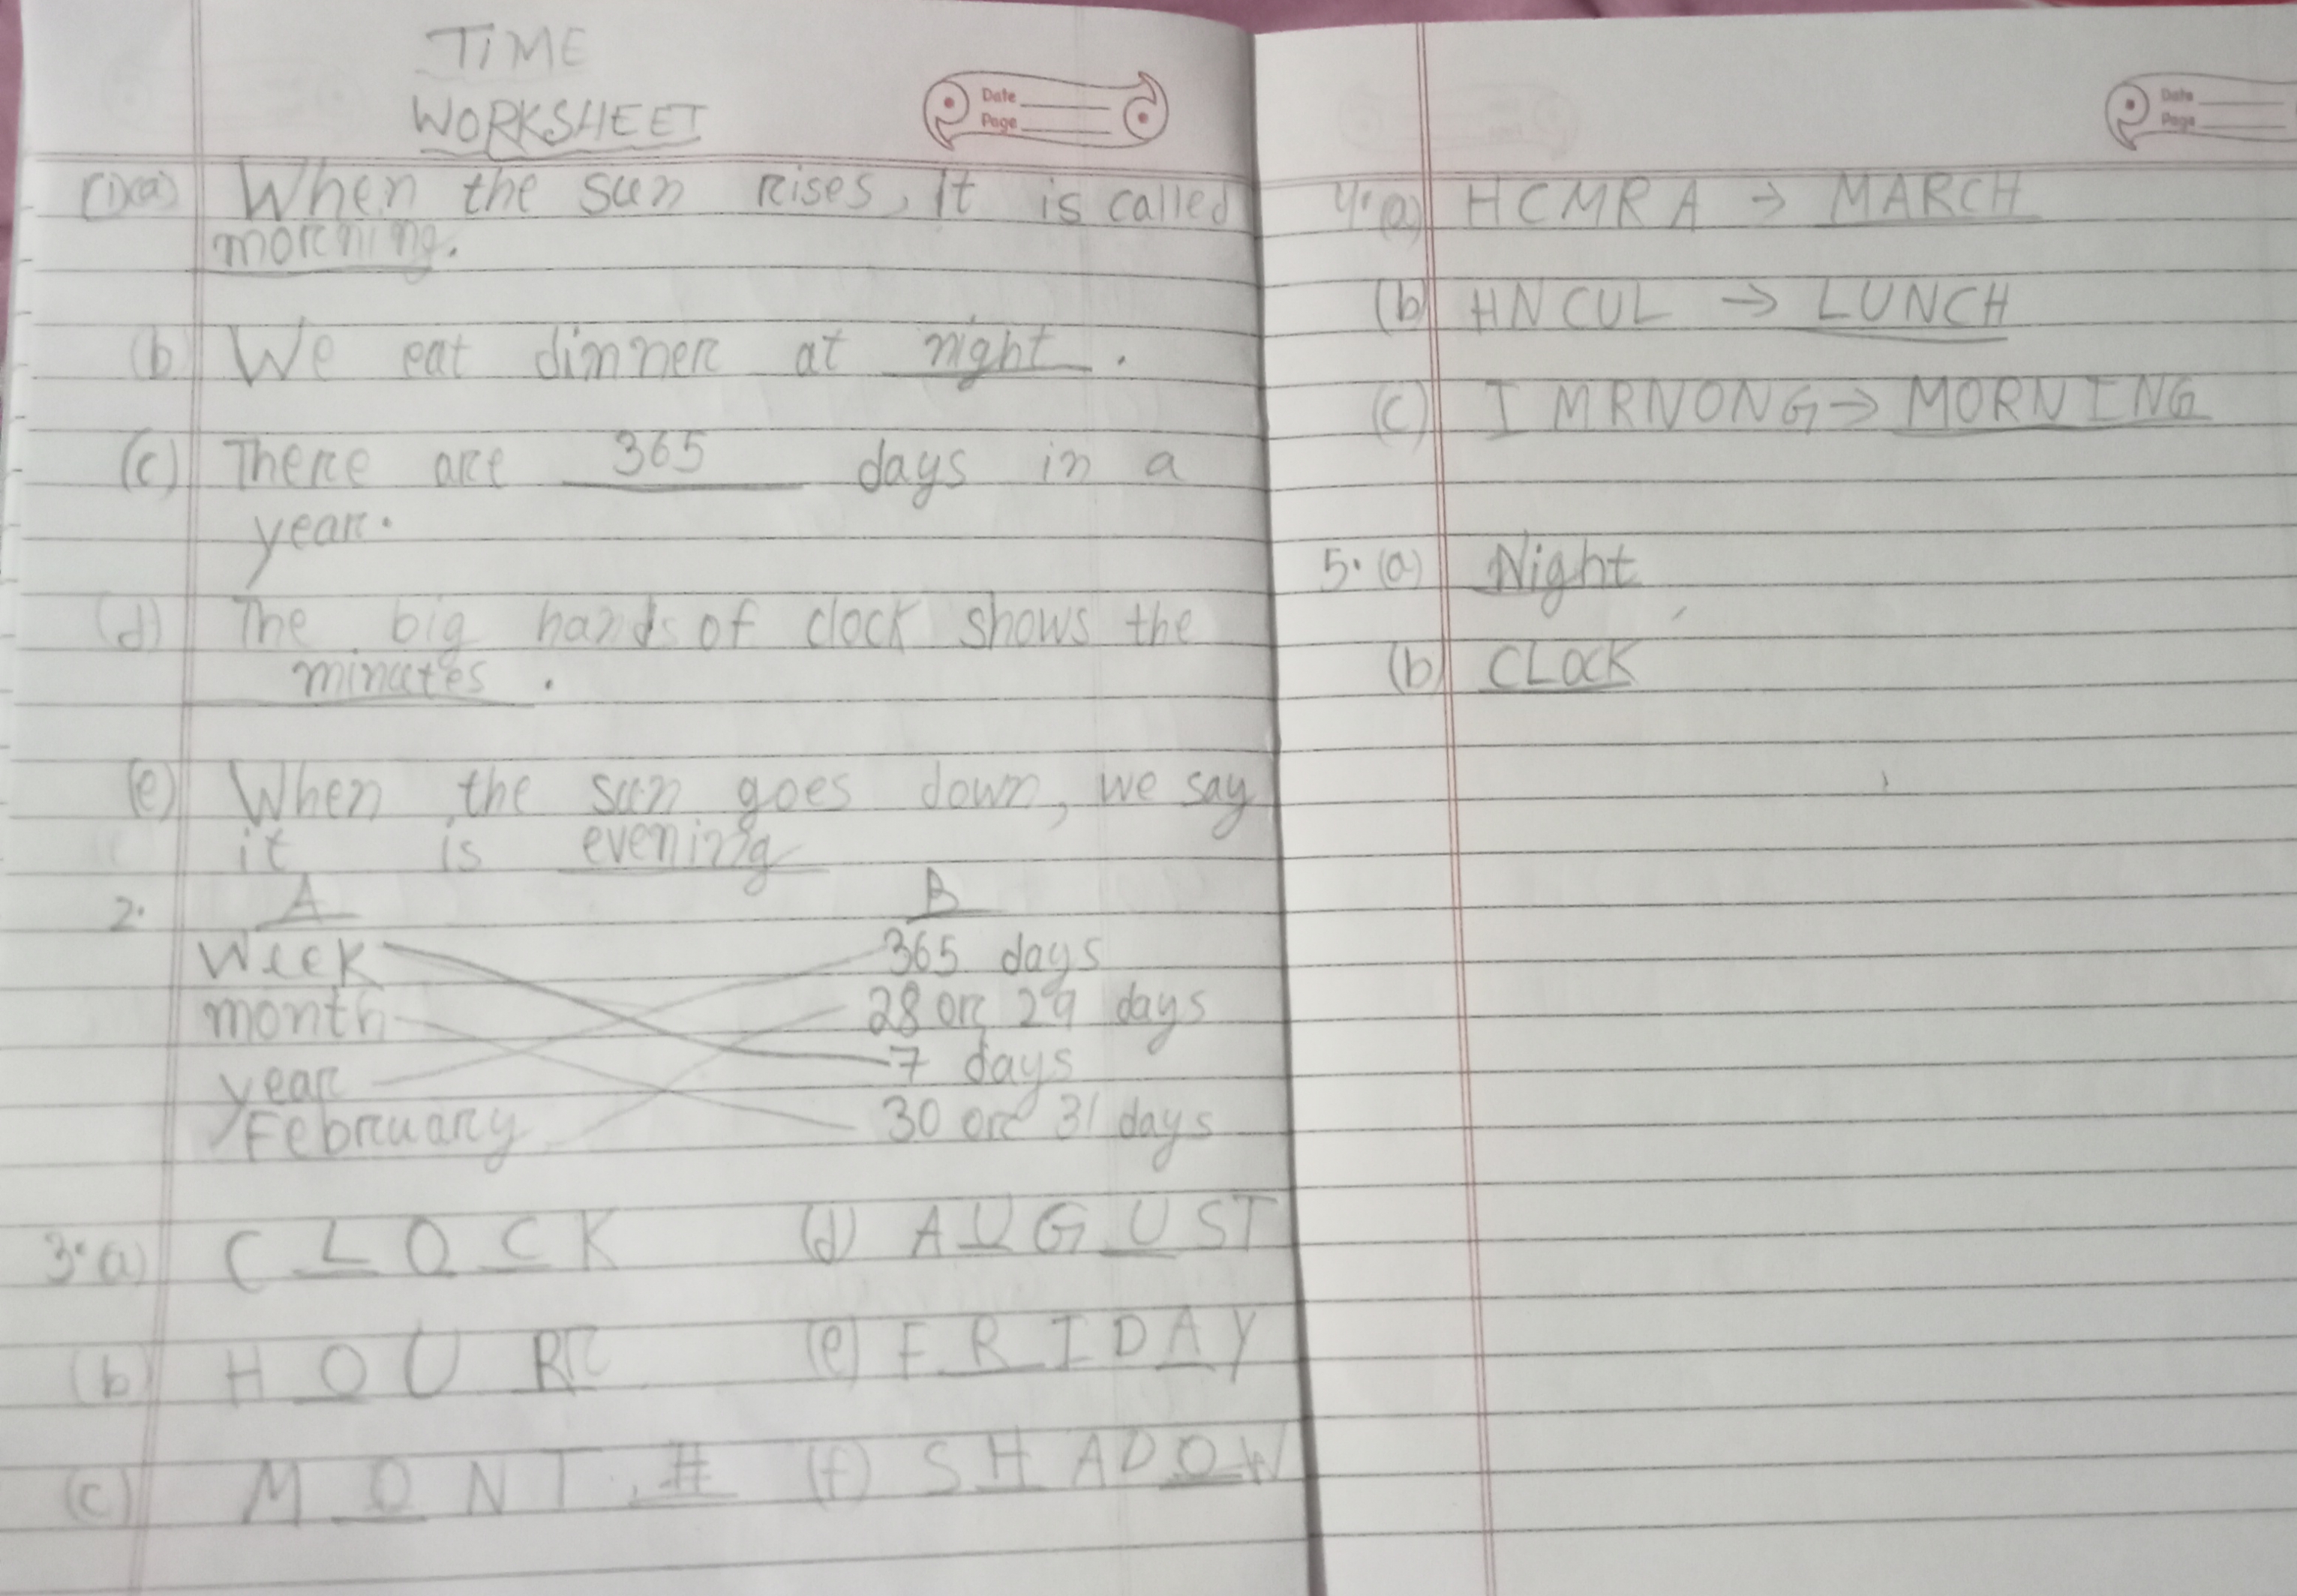 TIME
WORKSHEET
Date
Page
(1)(a) When the sun rises, It is called
morning.
(b) We eat dinner at night.
(c) There are 365 days in a
year.
(d) The big hands of clock shows the
minutes.
(e) When the sun goes down, we say
it is evening
2. A B
Week 365 days
month 28 or 29 days
year 7 days
February 30 or 31 days
3. a) C L O C K (d) A U G U S T
(b) H O U R (e) F R I D A Y
(c) M O N T H (f) S H A D O W
Date
Page
4. (a) HCMRA → MARCH
(b) HNCUL → LUNCH
(c) IMRNONG → MORNING
5. (a) Night
(b) CLOCK